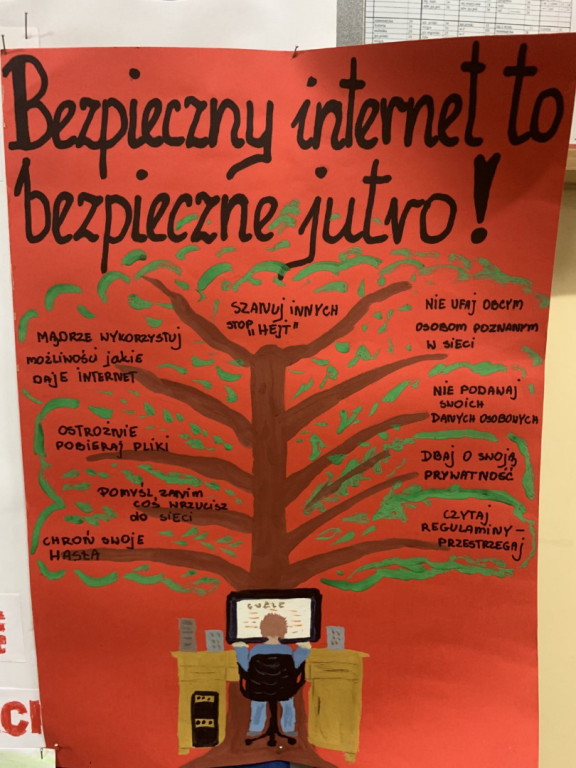 Bezpieczny internet to
bezpieczne jutro!
SZANUJ INNYCH
STOP "HEJT"
NIE UFAJ OBCYM
OSOBOM POZNANYM
W SIECI
MĄDRZE WYKORZYSTUJ
MOŻLIWOŚCI JAKIE
DAJE INTERNET
NIE PODAWAJ
SWOICH
DANYCH OSOBOWYCH
OSTROŻNIE
POBIERAJ PLIKI
DBAJ O SWOJĄ
PRYWATNOŚĆ
POMYŚL ZANIM
COŚ WRZUCISZ
do SIECI
CZYTAJ
REGULAMINY-
PRZESTRZEGAJ
CHROŃ SWOJE
HASŁA